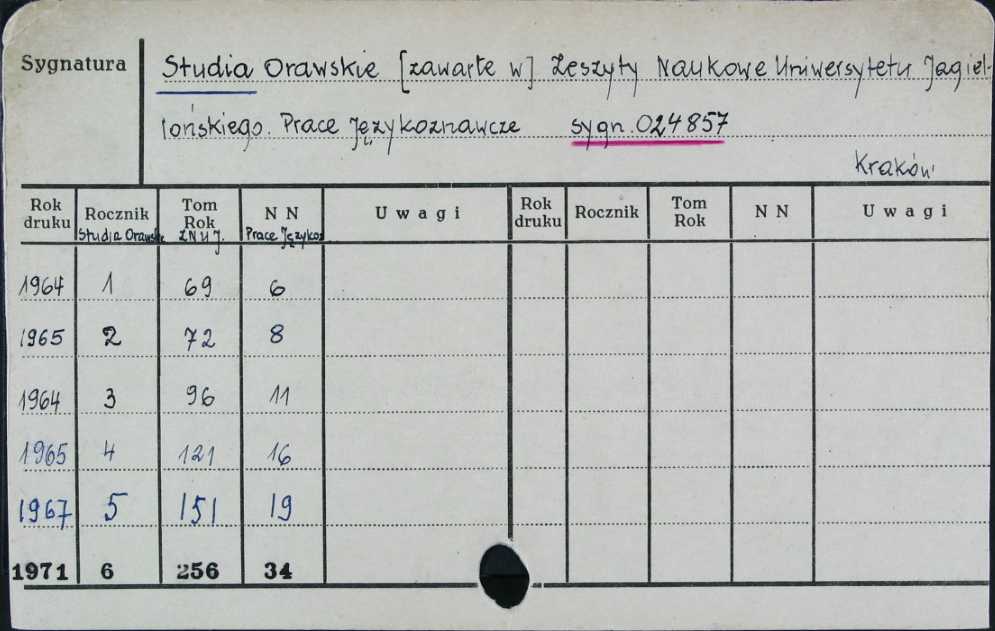 Sygnatura
Studia Orawskie [zawarte w] Zeszyty Naukowe Uniwersytetu Jagiel-
lońskiego. Prace Językoznawcze sygn. 024857
Kraków
Rok druku Rocznik Tom Rok N N Uwagi Rok druku Rocznik Tom Rok N N Uwagi
Studia Orawskie ZNUJ. Prace Językoz
1964 1 69 6
1965 2 72 8
1964 3 96 11
1965 4 121 16
1967 5 151 19
1971 6 256 34